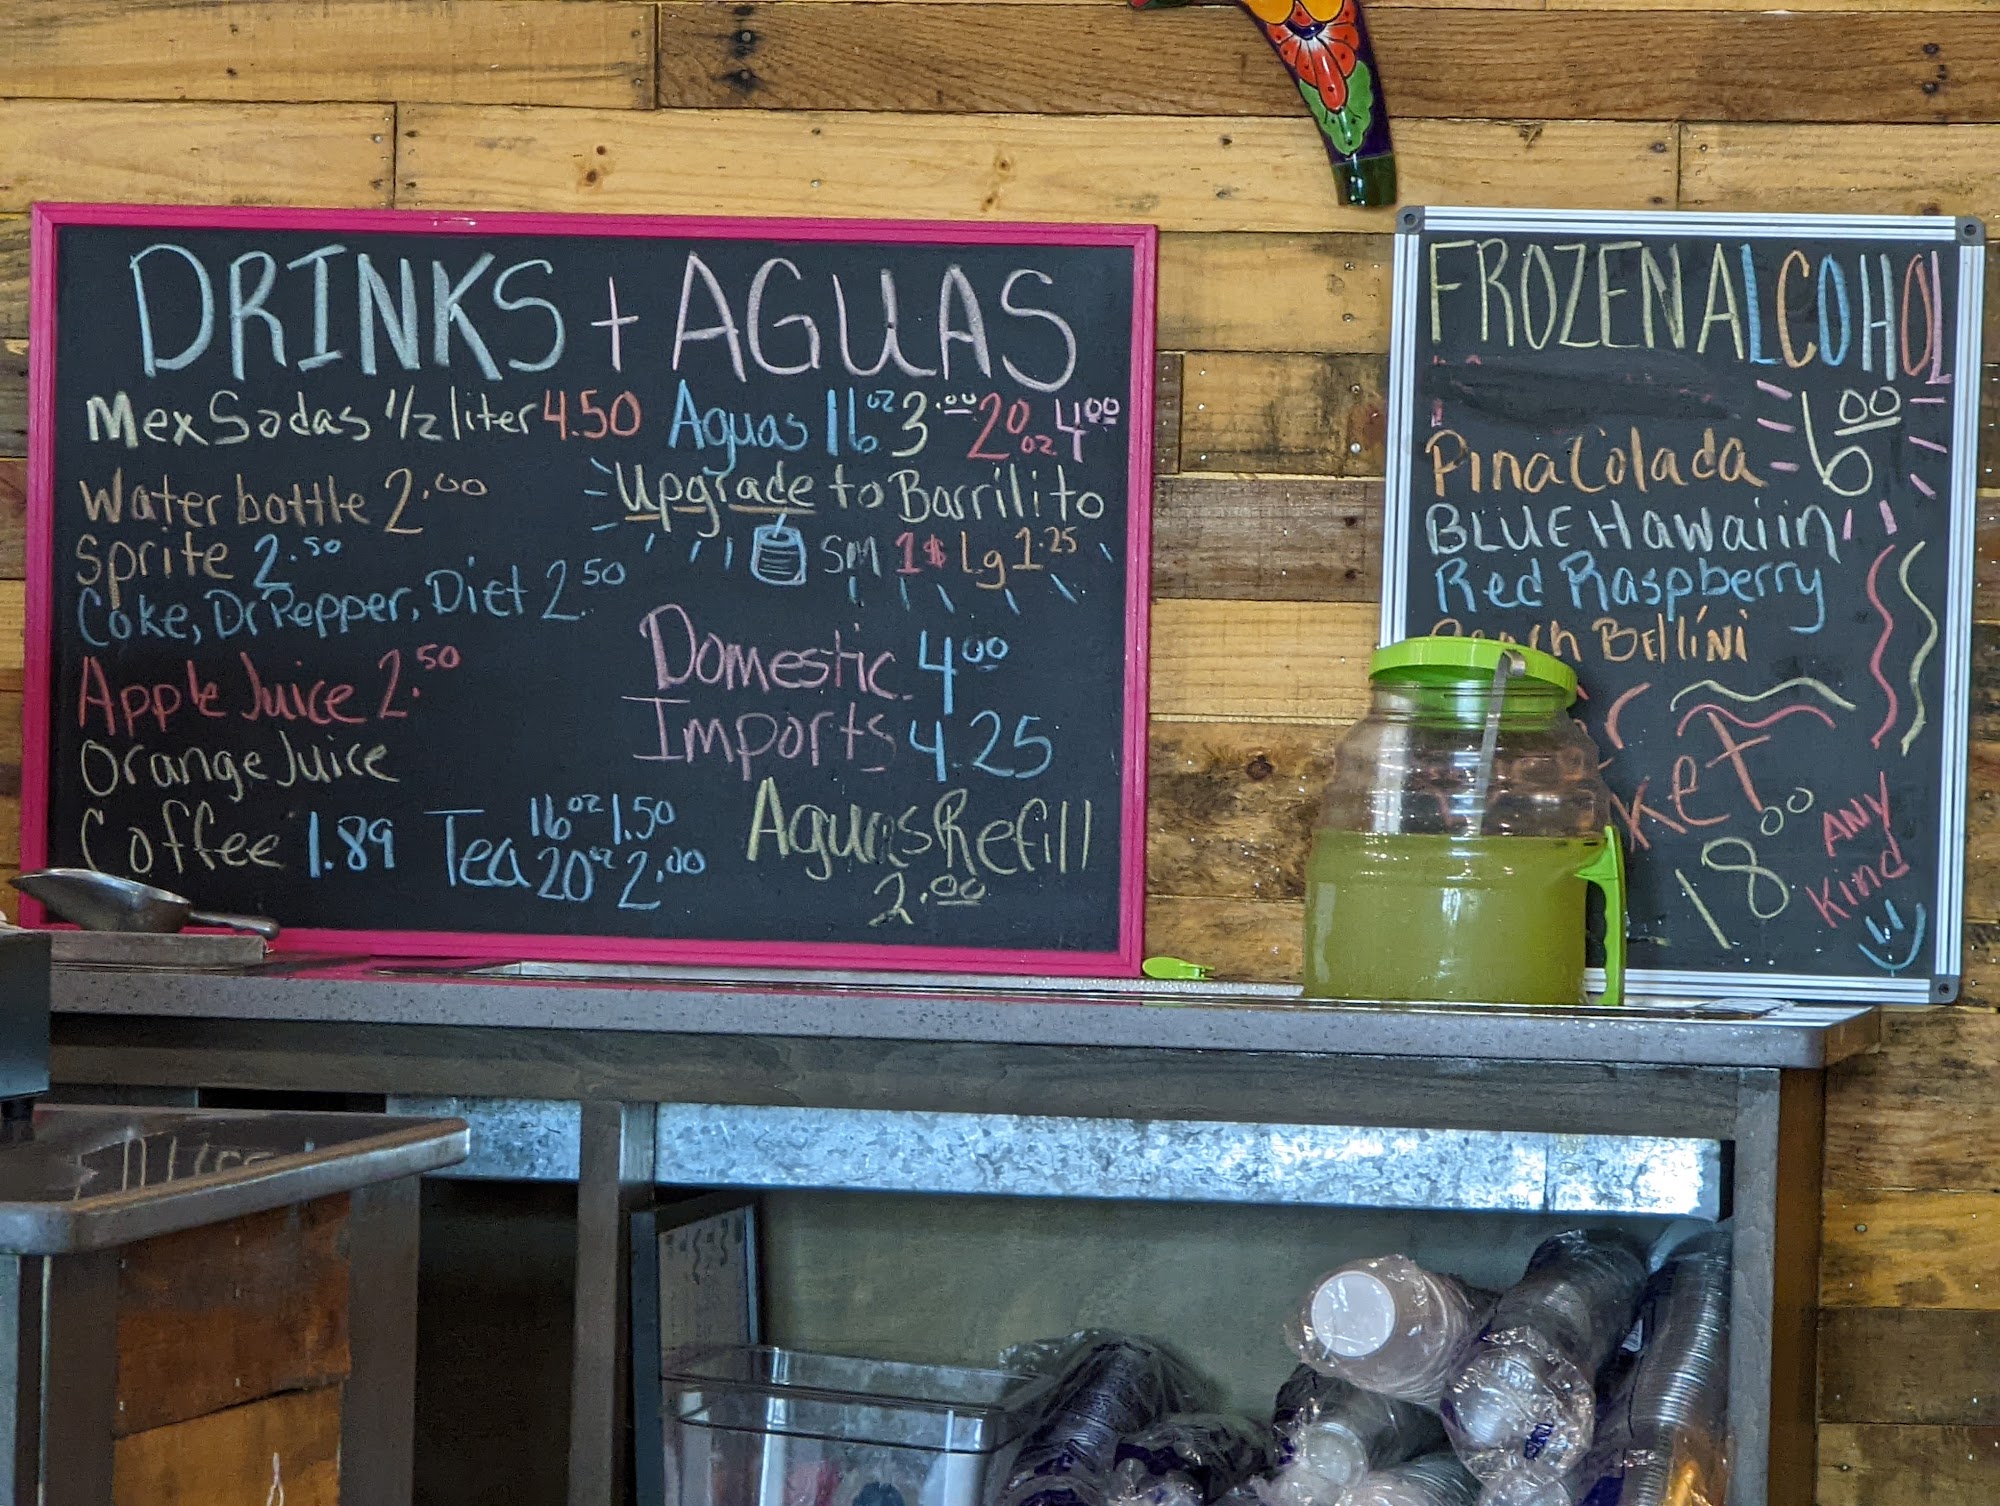 DRINKS + AGUAS
Mex Sodas 1/2 liter 4.50
Water bottle 2.00
Sprite 2.50
Coke, Dr Pepper, Diet 2.50
Apple Juice 2.50
Orange Juice
Coffee 1.89
Tea 16oz 1.50
20oz 2.00
Aguas 16oz 3.00 20oz 4.00
Upgrade to Barrilito
SM 1$ Lg 1.25
Domestic 4.00
Imports 4.25
Aguas Refill
2.00
FROZEN ALCOHOL
6.00
Pina Colada
BLUE Hawaiin
Red Raspberry
BELLíNi
18.00
ANY
Kind